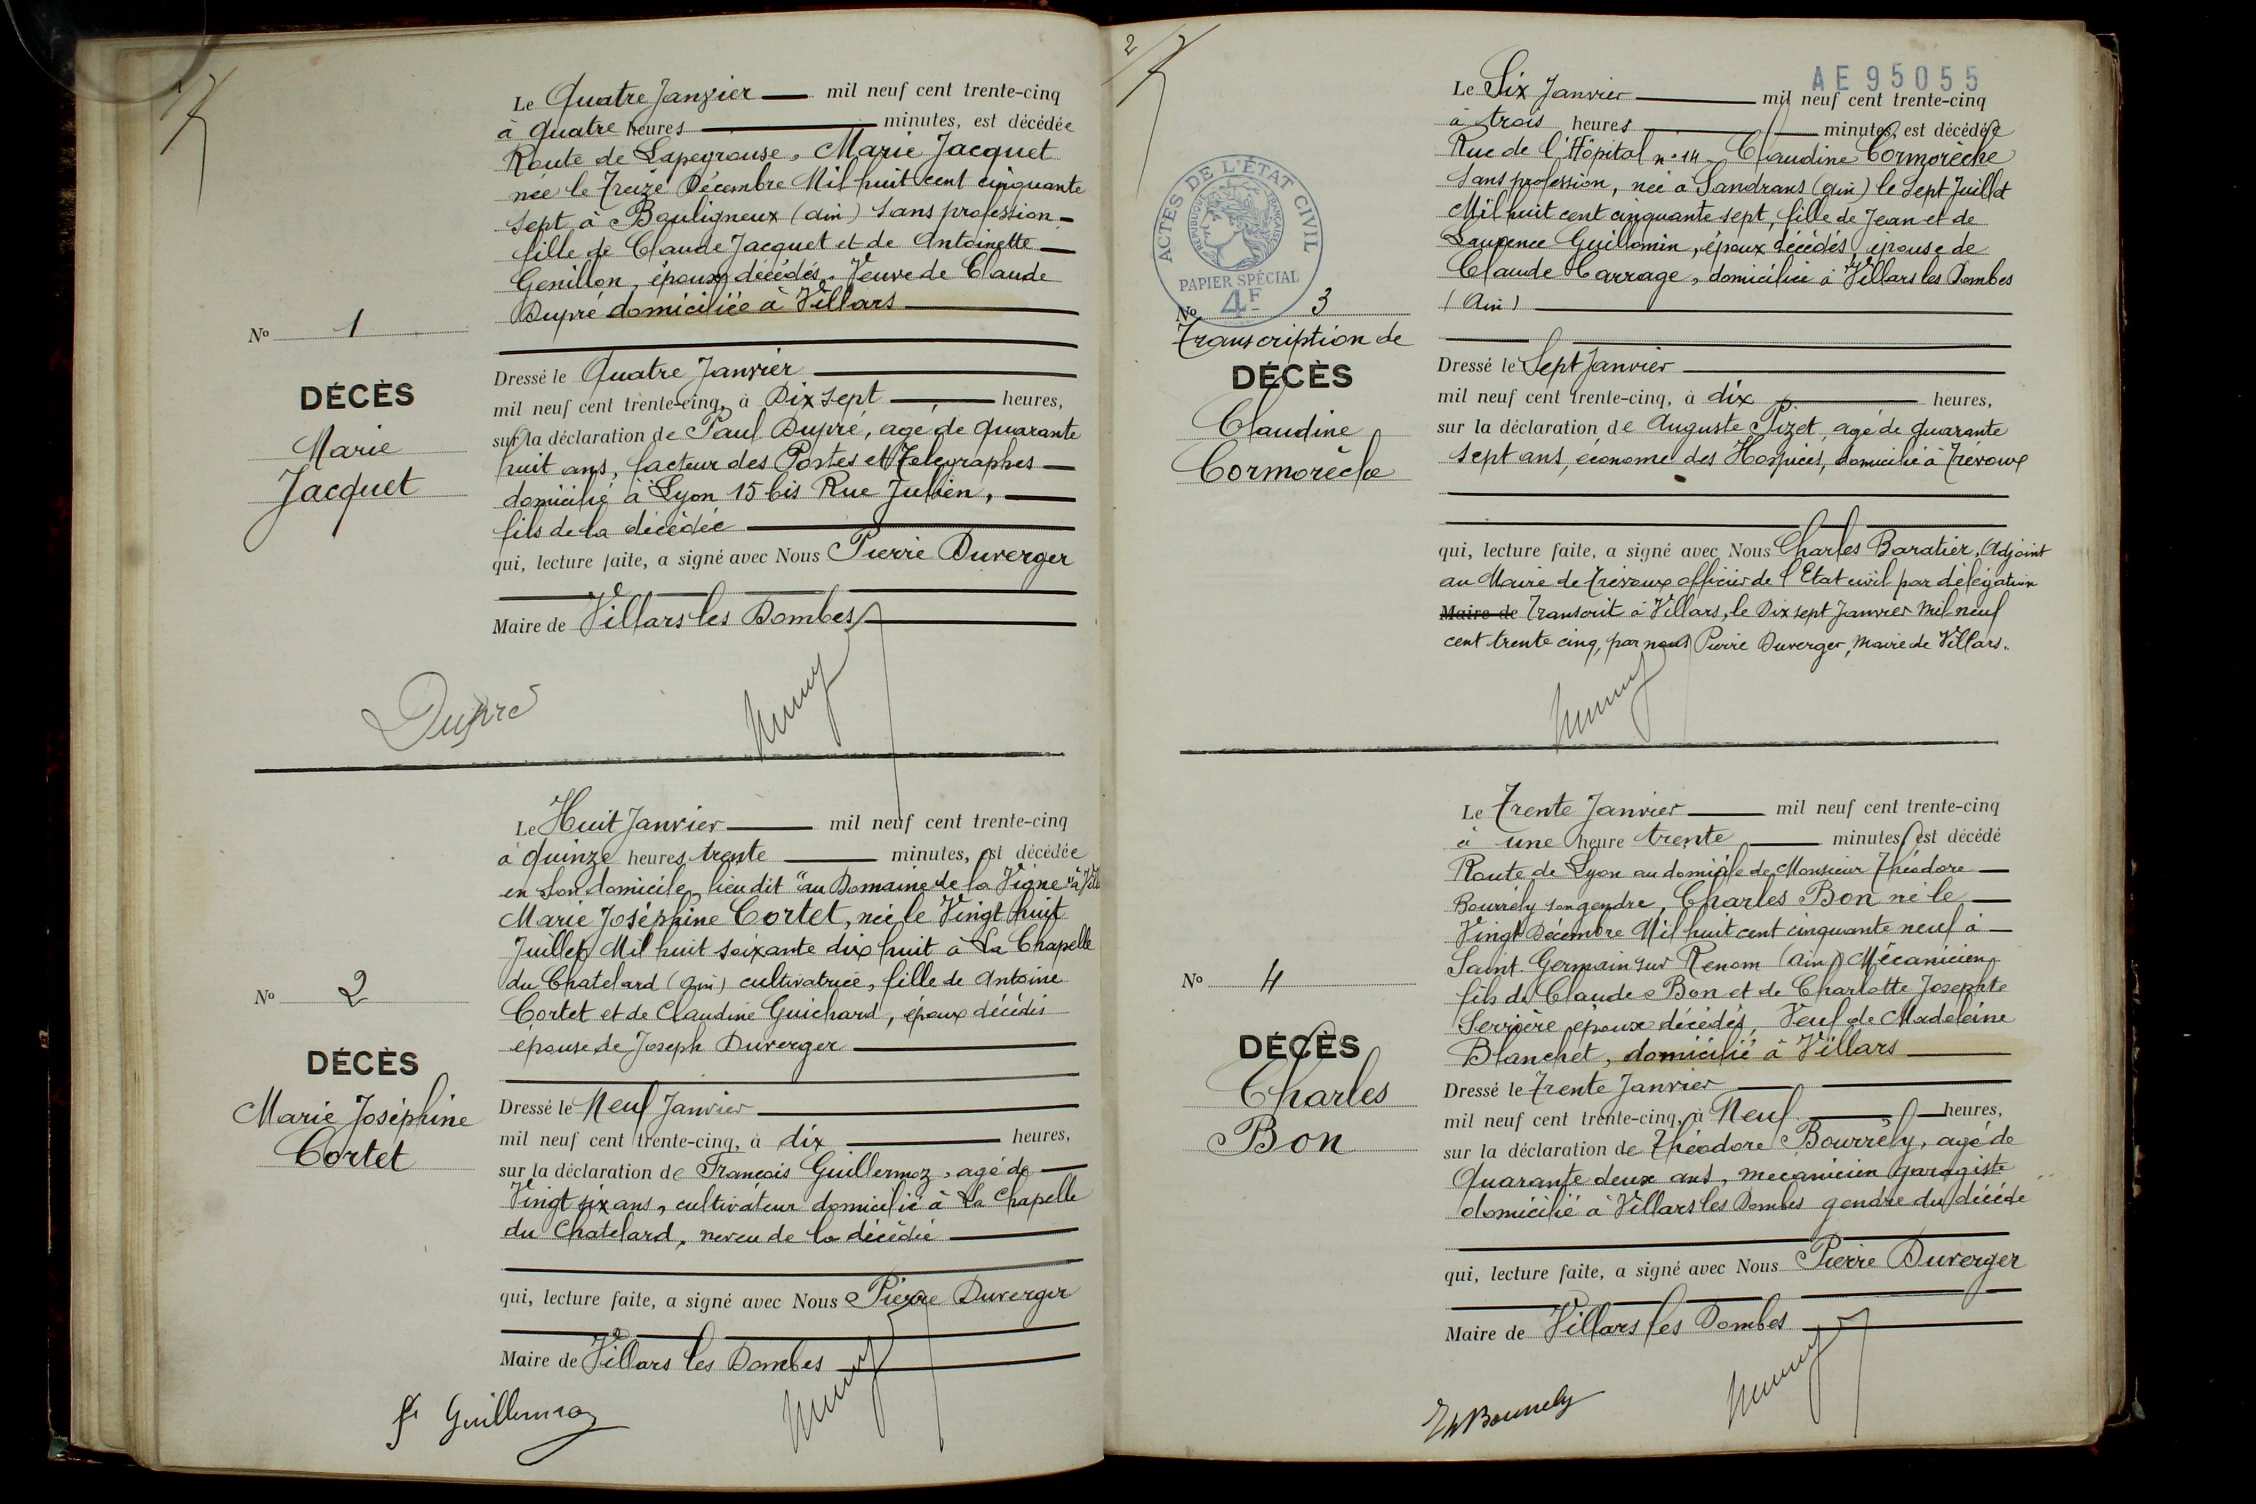 Le Quatre Janvier mil neuf cent trente-cinq
à quatre heures minutes, est décédée
Route de Lapeyrouse, Marie Jacquet
née le Treize Décembre Mil huit cent cinquante
sept à Bouligneux (ain) sans profession
fille de Claude Jacquet et de Antoinette
Genillon, époux décédés. Veuve de Claude
Dupré domiciliée à Villars
No 1
DÉCÈS
Marie
Jacquet
Dressé le Quatre Janvier
mil neuf cent trente-cinq, à Dix sept heures,
sur la déclaration de Paul Dupré, agé de quarante
huit ans, facteur des Postes et Télégraphes
domicilié à Lyon 15 bis Rue Julien,
fils de la décédée
qui, lecture faite, a signé avec Nous Pierre Duverger
Maire de Villars les Dombes
Dupré
Le Huit Janvier mil neuf cent trente-cinq
à quinze heures trente minutes, est décédée
en son domicile, lieu dit "au Domaine de la Vigne" à
Marie Joséphine Cortet, née le Vingt huit
Juillet Mil huit soixante dix huit à La Chapelle
du Chatelard (ain) cultivatrice, fille de Antoine
Cortet et de Claudine Guichard, époux décédés
épouse de Joseph Duverger
No 2
DÉCÈS
Marie Joséphine
Cortet
Dressé le Neuf Janvier
mil neuf cent trente-cinq, à dix heures,
sur la déclaration de François Guillermoz, agé de
Vingt six ans, cultivateur domicilié à La Chapelle
du Chatelard, neveu de la décédée
qui, lecture faite, a signé avec Nous Pierre Duverger
Maire de Villars les Dombes
Guillermoz
2
AE95055
Le Six Janvier mil neuf cent trente-cinq
à trois heures minutes, est décédée
Rue de l'Hôpital n° 14 Claudine Cormorèche
sans profession, née à Sandrans (ain) le Sept Juillet
Mil huit cent cinquante sept, fille de Jean et de
Laurence Guillomin, époux décédés, épouse de
Claude Carrage, domiciliée à Villars les Dombes
(Ain)
ACTES DE L'ÉTAT CIVIL
RÉPUBLIQUE FRANÇAISE
PAPIER SPÉCIAL
4F
No 3
Transcription de
DÉCÈS
Claudine
Cormorèche
Dressé le Sept Janvier
mil neuf cent trente-cinq, à dix heures,
sur la déclaration de Auguste Pizet, agé de quarante
sept ans, économe des Hospices, domicilié à Trévoux
qui, lecture faite, a signé avec Nous Charles Baratier, Adjoint
au Maire de Trévoux officier de l'Etat civil par délégation
Maire de Transcrit à Villars, le Dix sept Janvier mil neuf
cent trente cinq, par nous Pierre Duverger, Maire de Villars.
Le Trente Janvier mil neuf cent trente-cinq
à une heure trente minutes est décédé
Route de Lyon au domicile de Monsieur Théodore
Bourrély son gendre, Charles Bon né le
Vingt Décembre Mil huit cent cinquante neuf à
Saint Germain sur Renom (ain) Mécanicien
fils de Claude Bon et de Charlotte Josephte
Serrière époux décédés, Veuf de Madeleine
Blanchet, domicilié à Villars
No 4
DÉCÈS
Charles
Bon
Dressé le Trente Janvier
mil neuf cent trente-cinq, à Neuf heures,
sur la déclaration de Théodore Bourrély, agé de
Quarante deux ans, mecanicien garagiste
domicilié à Villars les Dombes gendre du décédé
qui, lecture faite, a signé avec Nous Pierre Duverger
Maire de Villars les Dombes
Th Bourrely